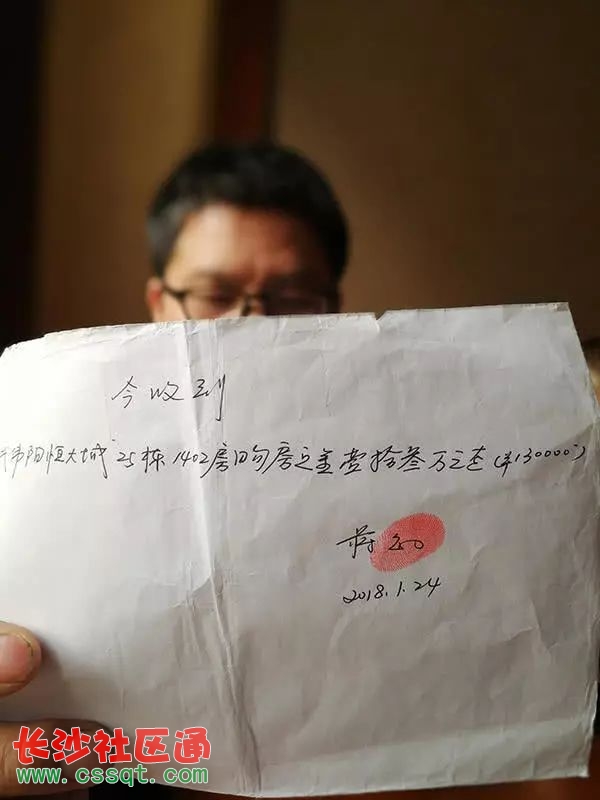 今收到
恒大城25栋1402房购房定金壹拾叁万元整(¥130000-)
蒋
2018.1.24
长沙社区通
www.cssqt.com